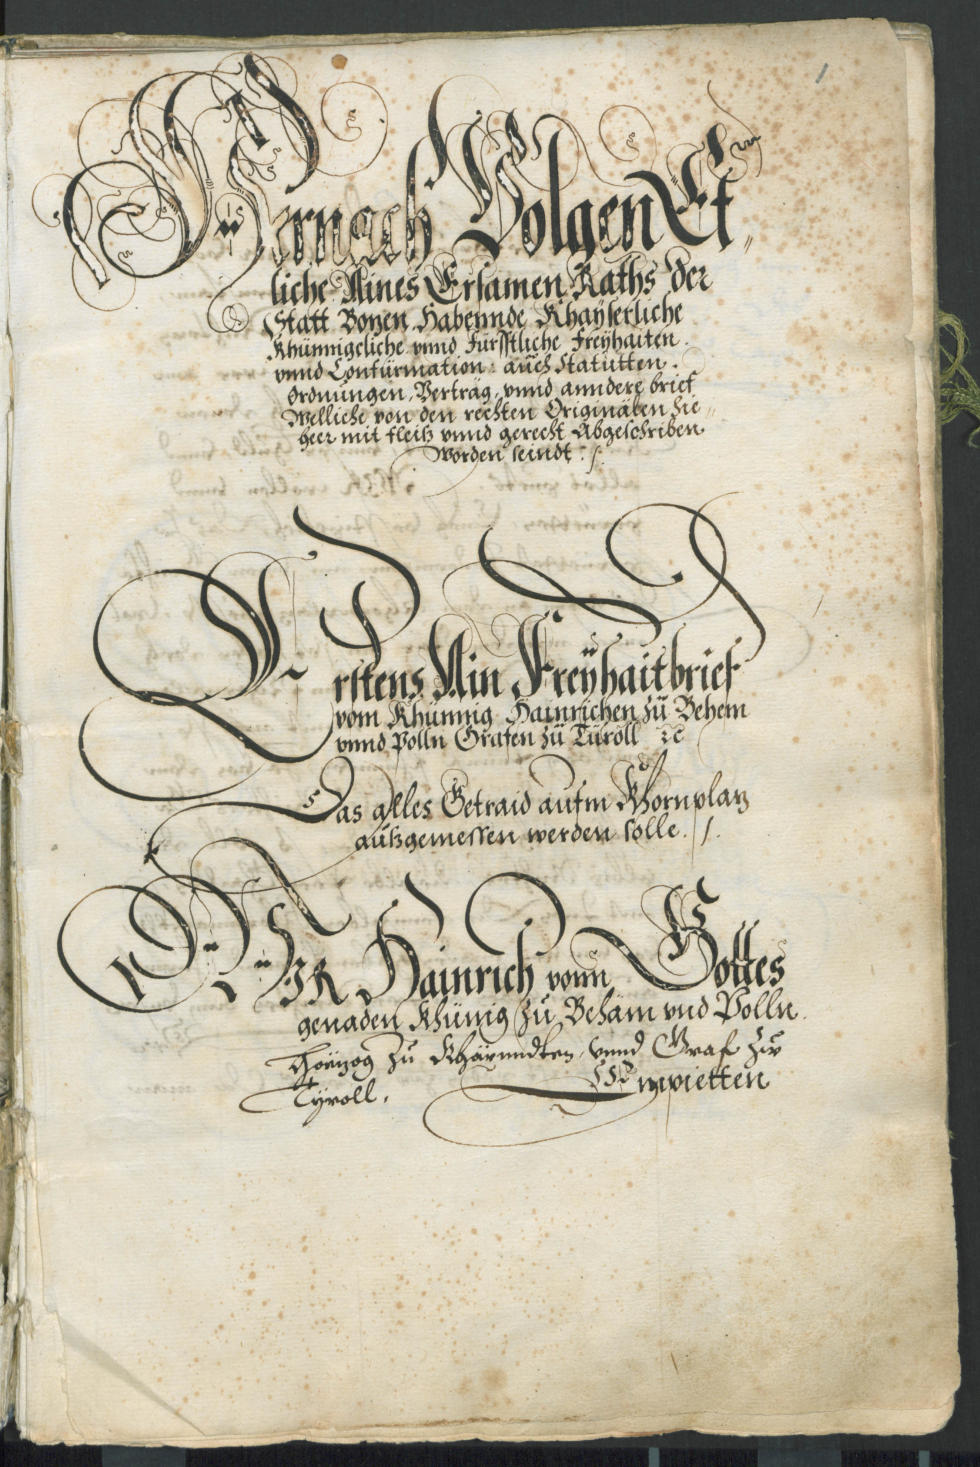 1
Hernach Volgen Et„
liche Aines Ersamen Raths der
Statt Bozen Habennde Khayserliche
Khünnigcliche vnnd Fürsstliche Freyhaiten.
vnnd Confürmation: auch Statutten.
Ordnungen, Verträg, vnnd anndere brief
Welliche von den rechten Originalen hie„
heer mit fleiß vnnd gerecht Abgeschriben
worden seindt ./.
Erstens Ain Freyhaitbrief
vom Khünnig Hainrichen zu Behem
vnnd Polln Grafen zu Türoll ꝛc
Das alles Getraid aufm Khornplaz
außgemessen werden solle. /.
WIR Hainrich vonn Gottes
genaden Khünig zu Behäm vnd Polln.
Herzog zu Khärnndten, vnnd Graf zu
Tyroll. Empietten